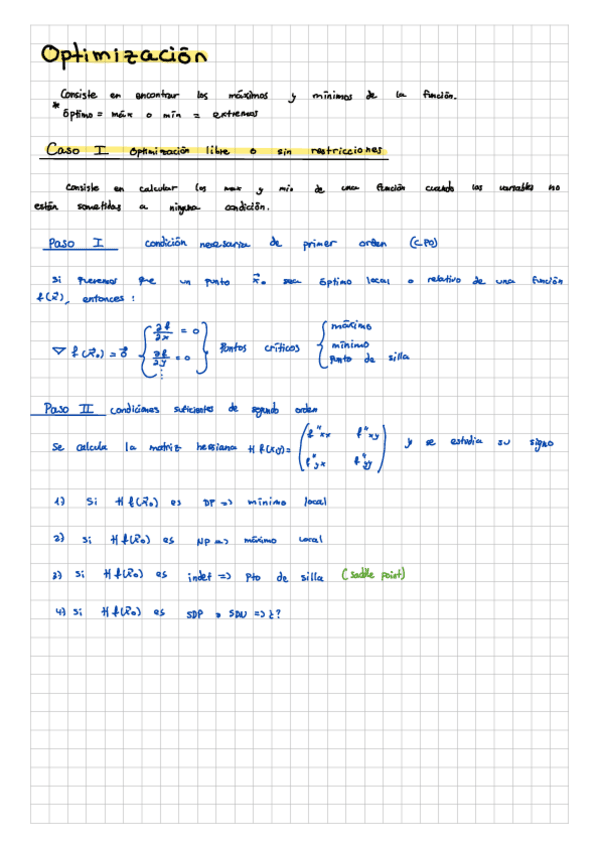 Optimización
Consiste en encontrar los máximos y mínimos de la función.
* óptimo = máx o mín = extremos
Caso I optimización libre o sin restricciones
Consiste en calcular los max y min de una función cuando las variables no
están sometidas a ninguna condición.
Paso I condición necesaria de primer orden (CPO)
Si queremos que un punto x⃗₀ sea óptimo local o relativo de una función
f(x⃗), entonces:
∇f(x⃗₀) = 0⃗ { ∂f/∂x = 0 ∂f/∂y = 0 ⋮ } Puntos críticos { máximo mínimo punto de silla
Paso II condiciones suficientes de segundo orden
Se calcula la matriz hessiana Hf(x,y) = ( f''xx f''xy f''yx f''yy ) y se estudia su signo
1) Si Hf(x⃗₀) es DP => mínimo local
2) Si Hf(x⃗₀) es NP => máximo local
3) Si Hf(x⃗₀) es indef => Pto de silla (saddle point)
4) Si Hf(x⃗₀) es SDP o SDN => ¿?